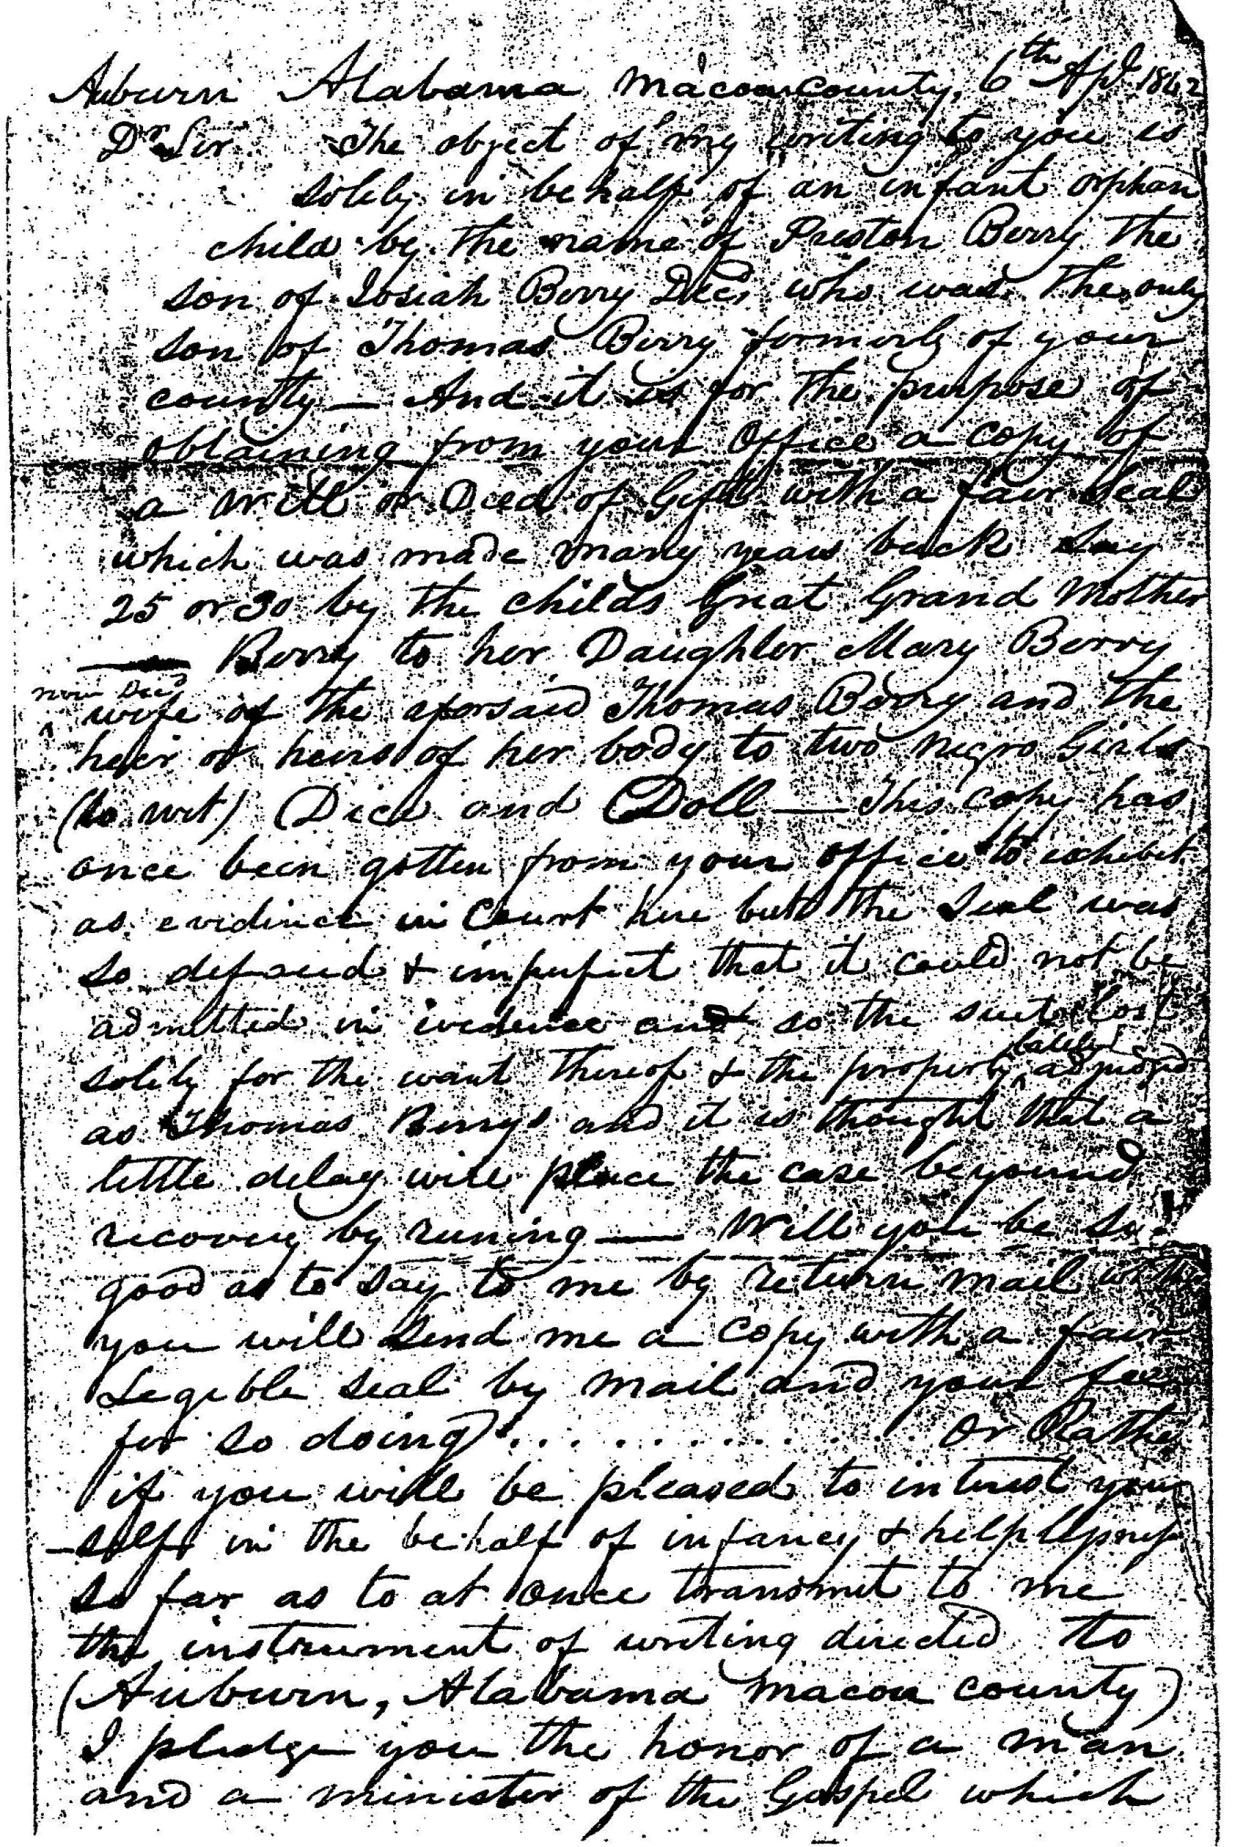 Auburn Alabama Macon County, 6th Apl. 1842
Dr Sir The object of my writing to you is
solely in behalf of an infant orphan
child by the name of Preston Berry the
son of Josiah Berry Decd, who was the only
son of Thomas Berry formerly of your
county — And it is for the purpose of
obtaining from your Office a copy of
a Will or Deed of Gift with a fair seal
which was made many years back say
25 or 30 by the childs Great Grand Mother
Berry to her Daughter Mary Berry
now Decd
wife of the aforsaid Thomas Berry and the
heir or heirs of her body to two negro Girls
(to wit) Dice and Doll — This copy has
once been gotten from your office to exhibit
as evidence in Court here but the Seal was
so defaced & imperfect that it could not be
admitted in evidence and so the suit lost
solely for the want thereof & the property adjudged
as Thomas Berrys and it is thought that a
little delay will place the case beyound
recovery by runing — Will you be so
good as to say to me by return mail
you will send me a copy with a fair
Legible seal by mail and your fee
for so doing . . . . . . . . . . . . . Or Rather
if you will be pleased to interest your
-self in the behalf of infancy & helplessness
so far as to at once transmit to me
the instrument of writing directed to
(Auburn, Alabama Macon county)
I pledge you the honor of a man
and a minister of the Gospel which